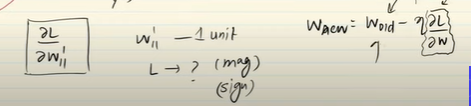 ∂L
∂w'₁₁
w'₁₁ — 1 unit
L → ? (mag)
(sign)
Wnew = Wold - η ∂L/∂w